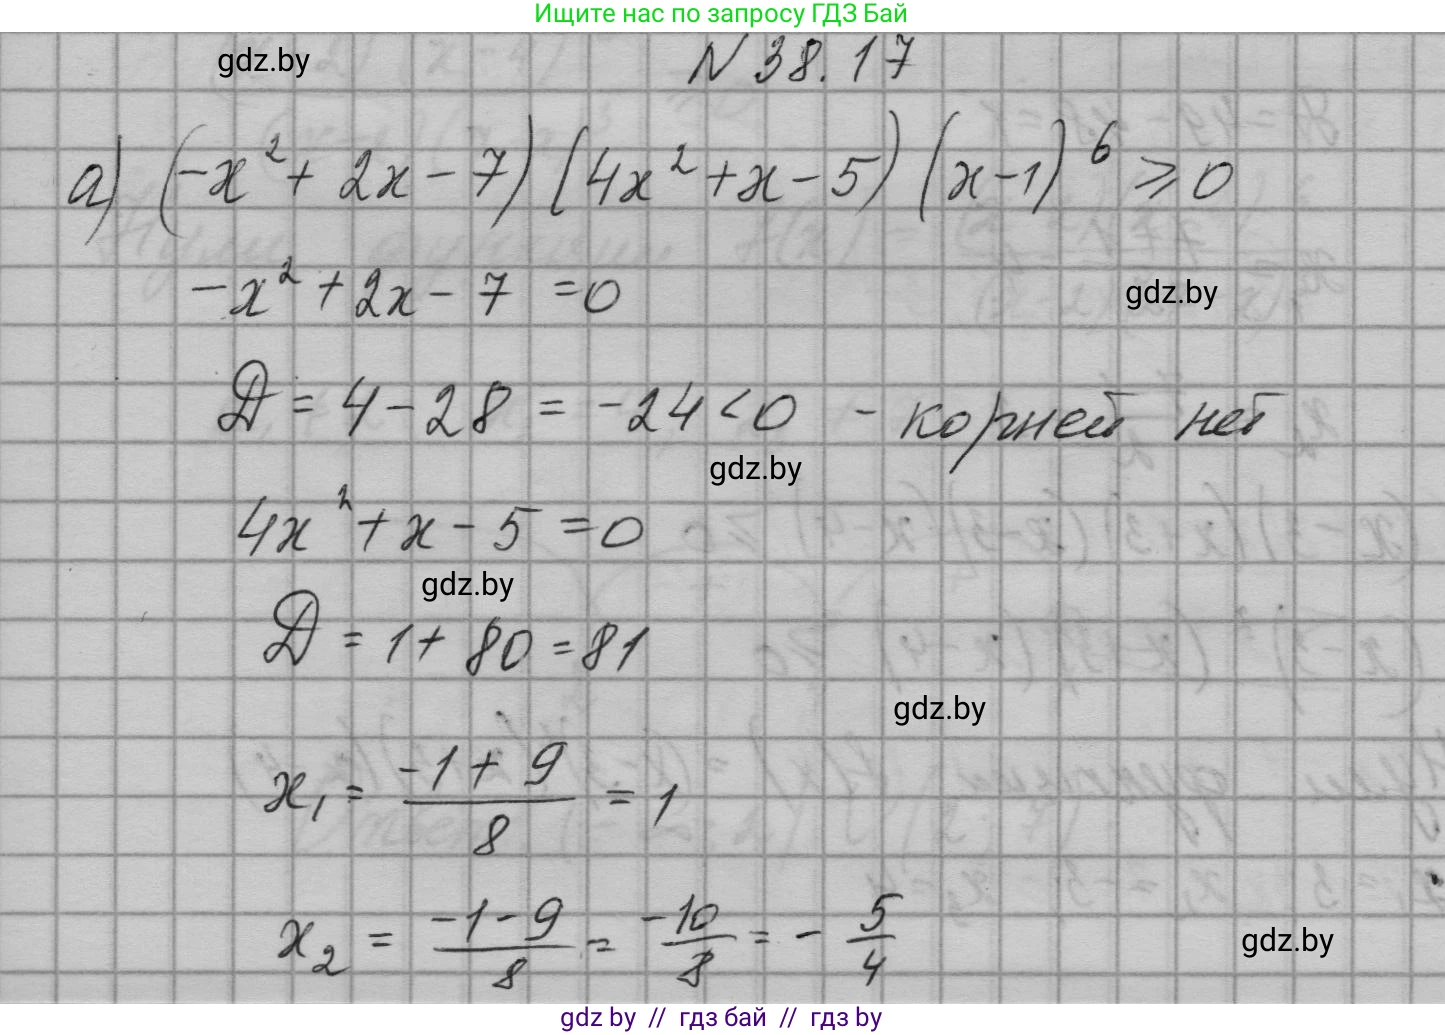 Ищите нас по запросу ГДЗ Бай
gdz.by
N 38.17
а) (-x² + 2x - 7) (4x² + x - 5) (x - 1)⁶ ⩾ 0
-x² + 2x - 7 = 0
gdz.by
D = 4 - 28 = -24 < 0 - корней нет
gdz.by
4x² + x - 5 = 0
gdz.by
D = 1 + 80 = 81
gdz.by
x₁ = (-1 + 9)/8 = 1
x₂ = (-1 - 9)/8 = -10/8 = - 5/4
gdz.by
gdz by // гдз бай // гдз by